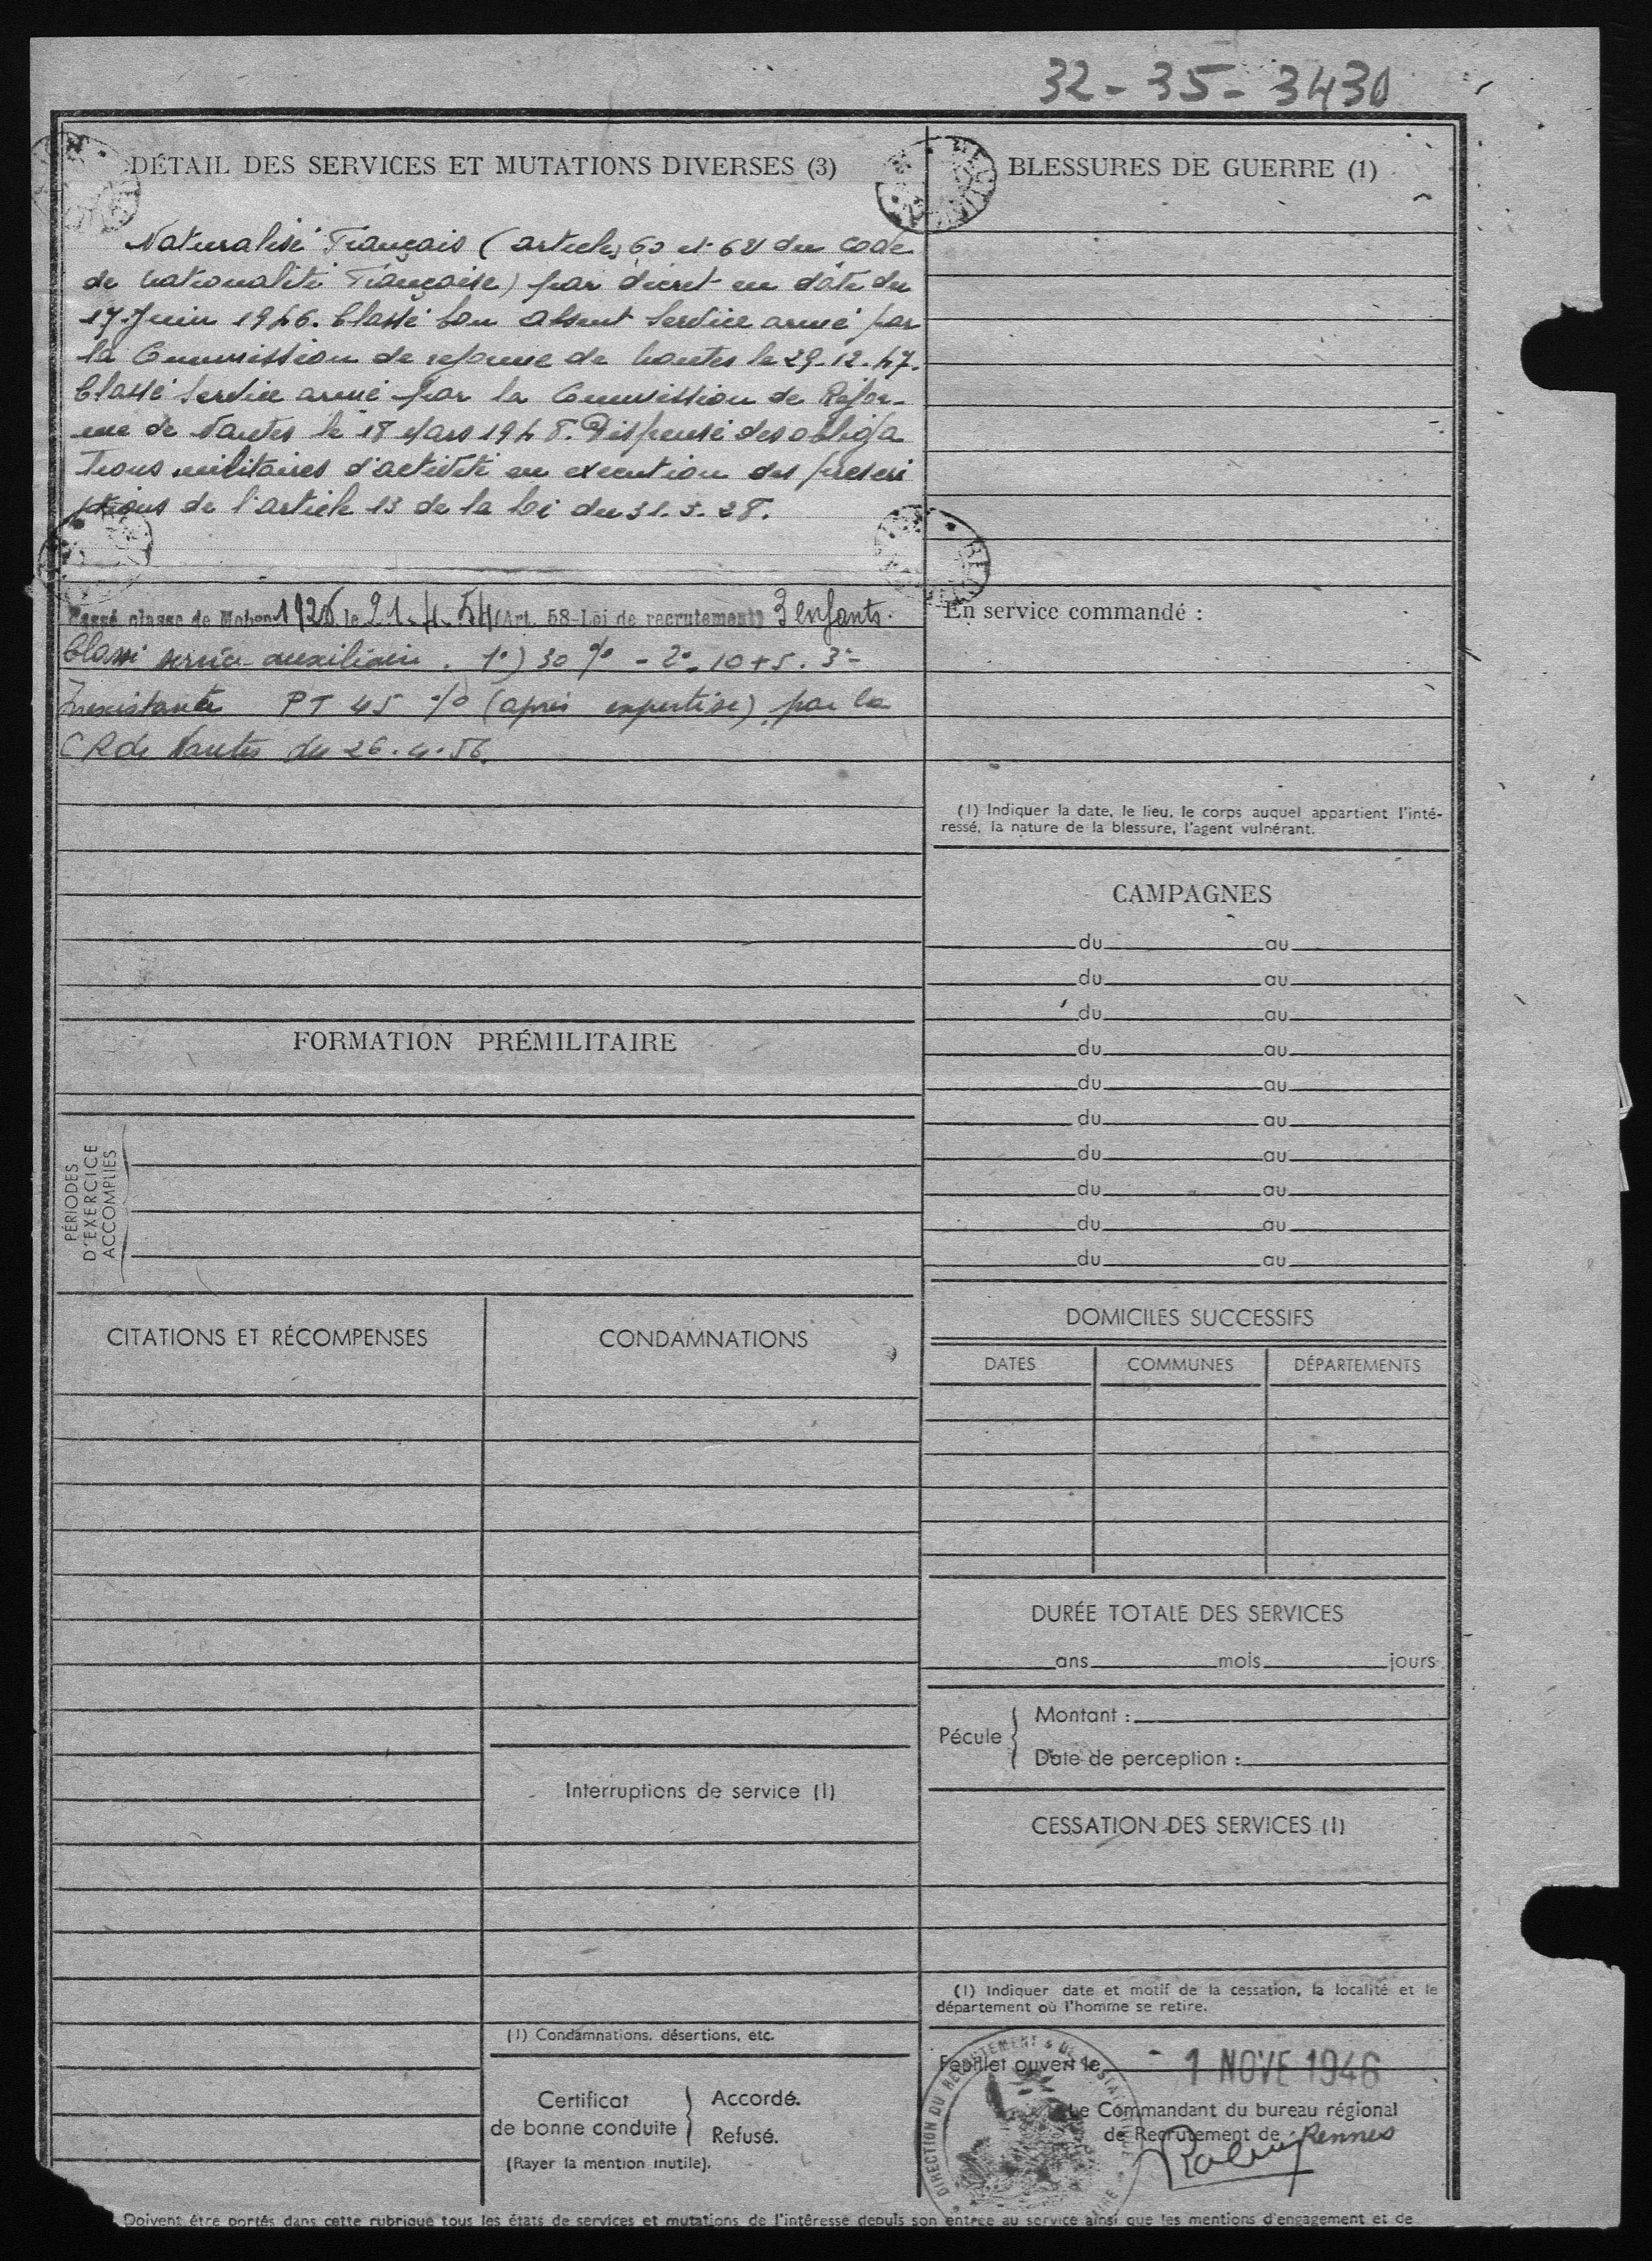 32-35-3430
DÉTAIL DES SERVICES ET MUTATIONS DIVERSES (3)
Naturalisé Français (articles 60 et 68 du Code
de nationalité Française) par décret en date du
17 Juin 1946. Classé bon absent Service armé par
la Commission de reforme de Nantes le 29.12.47.
Classé Service armé par la Commission de Réfor-
me de Nantes le 18 Mars 1948. Dispensé des obliga
tions militaires d'activité en execution des prescri
ptions de l'article 13 de la loi du 31.3.28.
Passé classe de Mob 1926 le 21.4.54 (Art. 58-Loi de recrutement) 3 enfants.
Classé service auxiliaire. 1°) 30 % - 2°- 10+5. 3°-
Inexistante PT 45 % (après expertise) par la
CR de Nantes du 26.4.56.
FORMATION PRÉMILITAIRE
PÉRIODES
D'EXERCICE
ACCOMPLIES
CITATIONS ET RÉCOMPENSES
CONDAMNATIONS
Interruptions de service (1)
(1) Condamnations, désertions, etc.
Certificat
de bonne conduite
Accordé.
Refusé.
(Rayer la mention inutile).
BLESSURES DE GUERRE (1)
En service commandé :
(1) Indiquer la date, le lieu, le corps auquel appartient l'inté-
ressé, la nature de la blessure, l'agent vulnérant.
CAMPAGNES
du au
du au
du au
du au
du au
du au
du au
du au
du au
du au
DOMICILES SUCCESSIFS
DATES COMMUNES DÉPARTEMENTS
DURÉE TOTALE DES SERVICES
ans mois jours
Pécule
Montant :
Date de perception :
CESSATION DES SERVICES (1)
(1) Indiquer date et motif de la cessation, la localité et le
département où l'homme se retire.
Feuillet ouvert le - 1 NOVE 1946
Le Commandant du bureau régional
de Recrutement de Rennes
DIRECTION DU RECRUTEMENT & DE
Doivent être portés dans cette rubrique tous les états de services et mutations de l'intéressé depuis son entrée au service ainsi que les mentions d'engagement et de